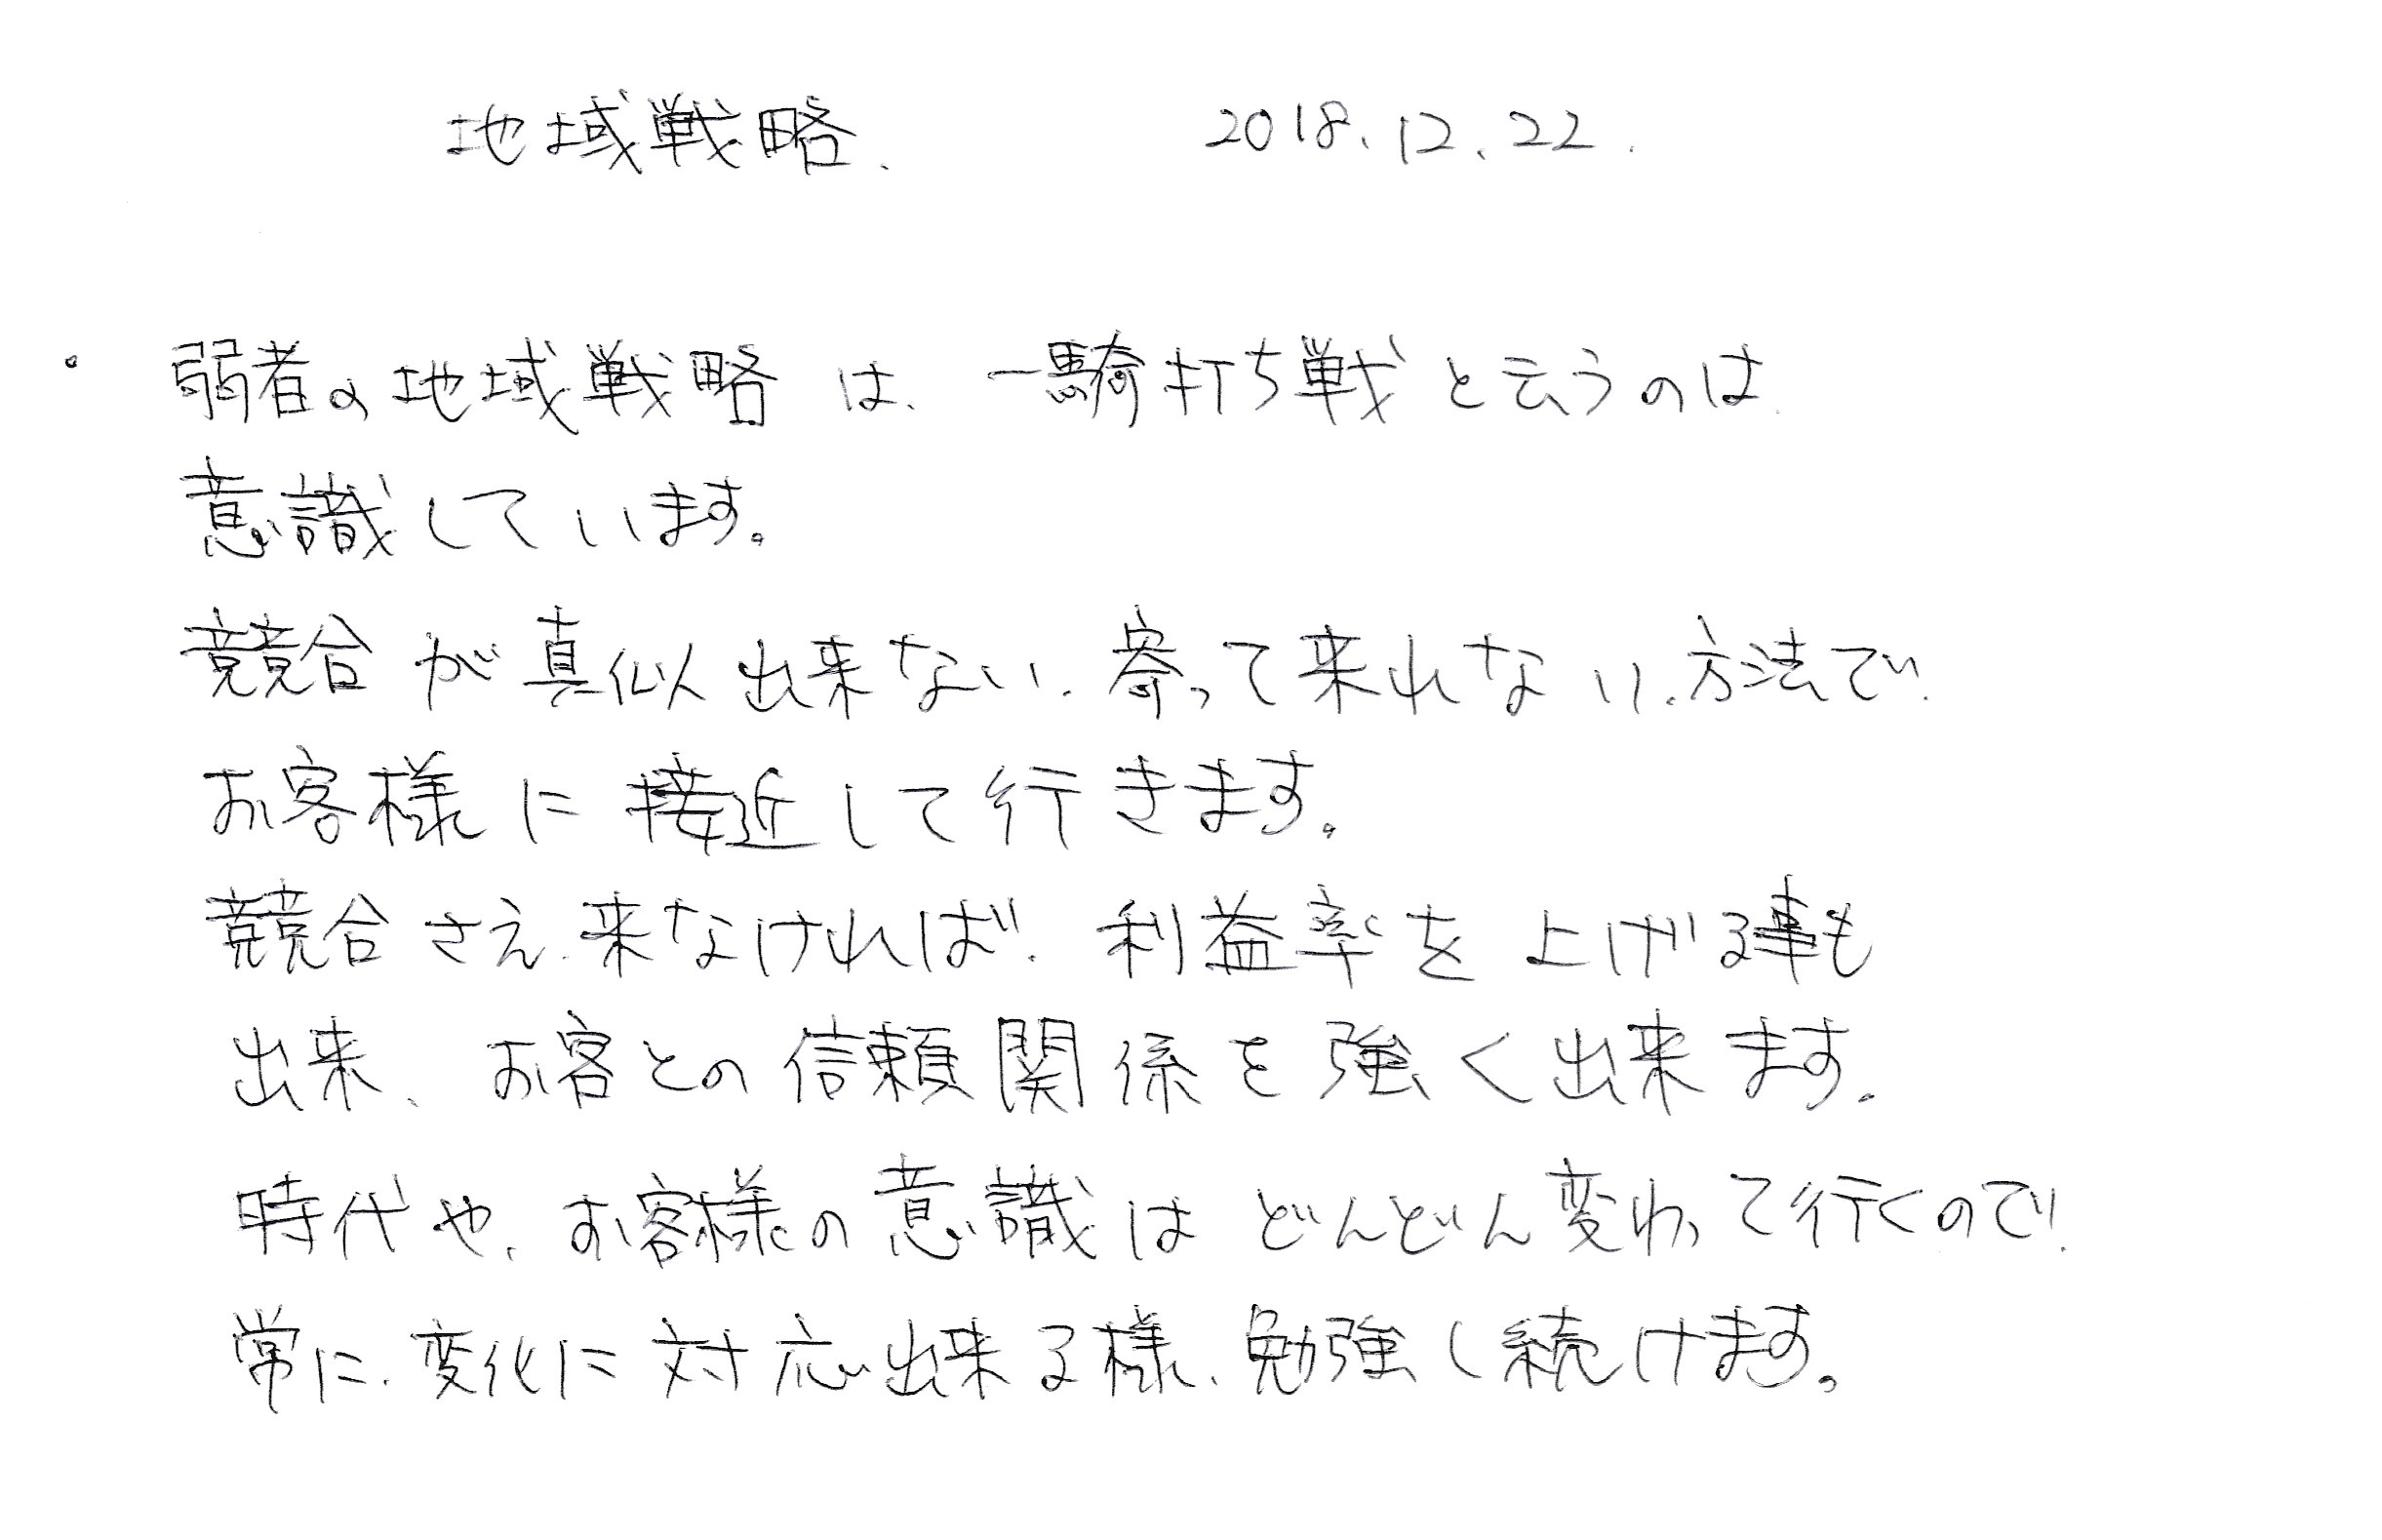 地域戦略、 2018.12.22.
・ 弱者の地域戦略は、一騎打ち戦と云うのは、
意識しています。
競合が真似出来ない、寄って来れない、方法で、
お客様に接近して行きます。
競合さえ、来なければ、利益率を上げる事も
出来、お客との信頼関係を強く出来ます。
時代や、お客様の意識はどんどん変わって行くので、
常に、変化に対応出来る様、勉強し続けます。